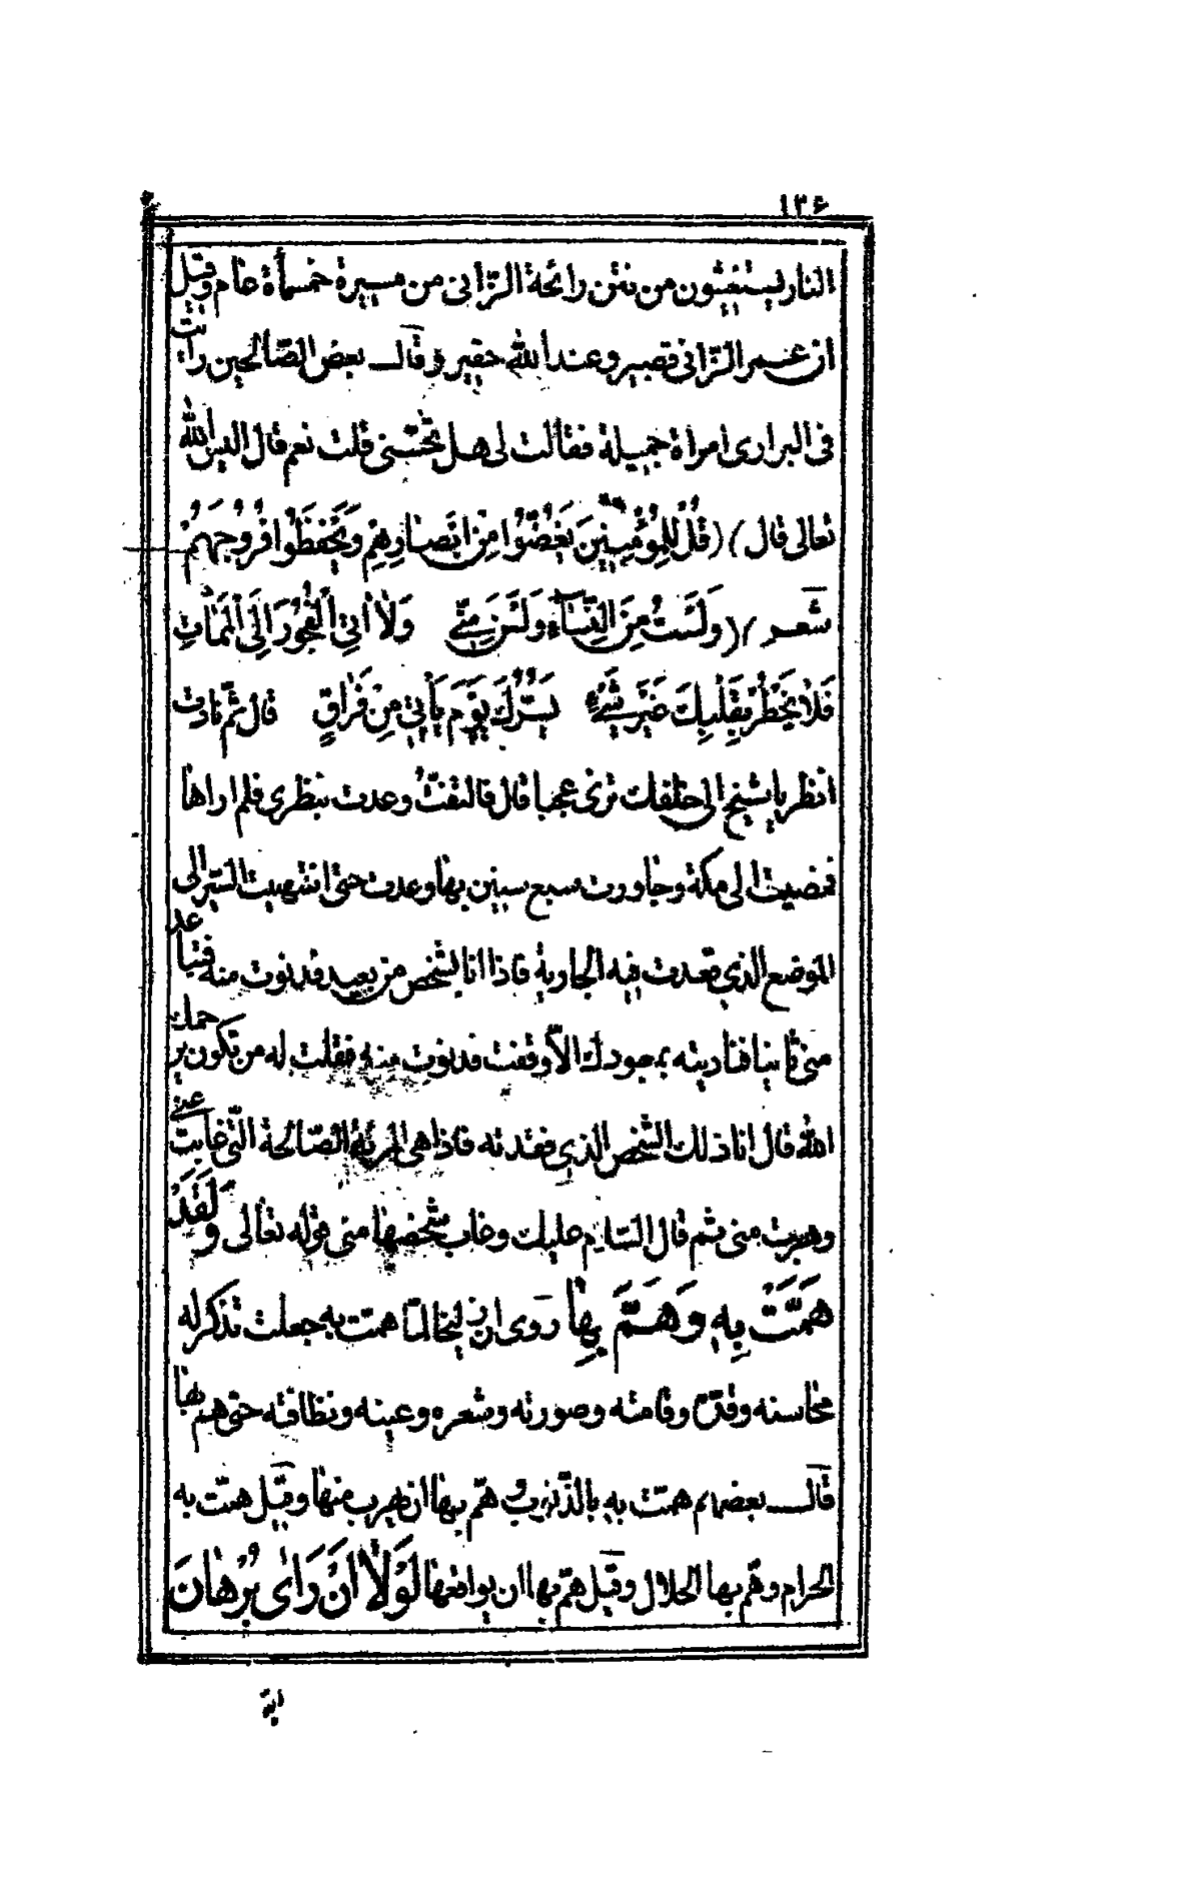 ١٣۶
النار يستغيثون من نتن رائحة الزانى من مسيرة خمسمأة عام وقيل
ان عمر الزانى قصير وعند الله حقير وقال بعض الصالحين رايت
فى البرارى امراة جميلة فقالت لى هل تحبنى قلت نعم قال اليس الله
تعالى قال ﴾ (قُلْ لِلْمُؤْمِنِينَ يَغُضُّوا مِنْ اَبْصارِهِمْ وَيَحْفَظُوا فُرُوجَهُمْ
شعر ﴾ وَلَسْتُ مِنَ النِّسَاءِ وَلَسْنَ مِنِّي وَلاٰ اٰتِي الْفُجُورَ اِلَى الْمَمَاتِ
فَلاٰ يَخْطُرْ بِقَلْبِكَ غَيْرَ شَيْءٍ يَسُرُّكَ يَوْمَ يَأْتِي مِنْ فِرَاقٍ قال ثم نادت
انظر يا شيخ الى خلفك ترى عجبا قال فالتفتُ وعدت بنظرى فلم اراها
فمضيت الى مكة وجاورت سبع سنين بها وعدت حتى انتهيت السير الى
الموضع الذي فقدت فيه الجارية فاذا انا بشخص من بعيد فدنوت منه فتباعد
منى ثانيا فناديته بمعبودك الاّ وقفت فدنوت منه فقلت له من تكون يرحمك
الله قال انا ذلك الشخص الذي فقدته فاذا هى المرئة الصالحة التى غابت عنى
وهربت منى ثم قال السلام عليك وغاب شخصها منى قوله تعالى وَلَقَدْ
هَمَّتْ بِهِ وَهَمَّ بِهٰا روى ان زليخا لمّا همت به جعلت تذكر له
محاسنه وقدّه وقامته وصورته وشعره وعينه ونظافته حتى هم بها
قال بعضهم همّت به بالذنوب وهمّ بها ان يهرب منها وقيل همّت به
الحرام وهمّ بها الحلال وقيل همّ بها ان يواقعها لَوْلاٰ اَنْ رَاٰى بُرْهانَ